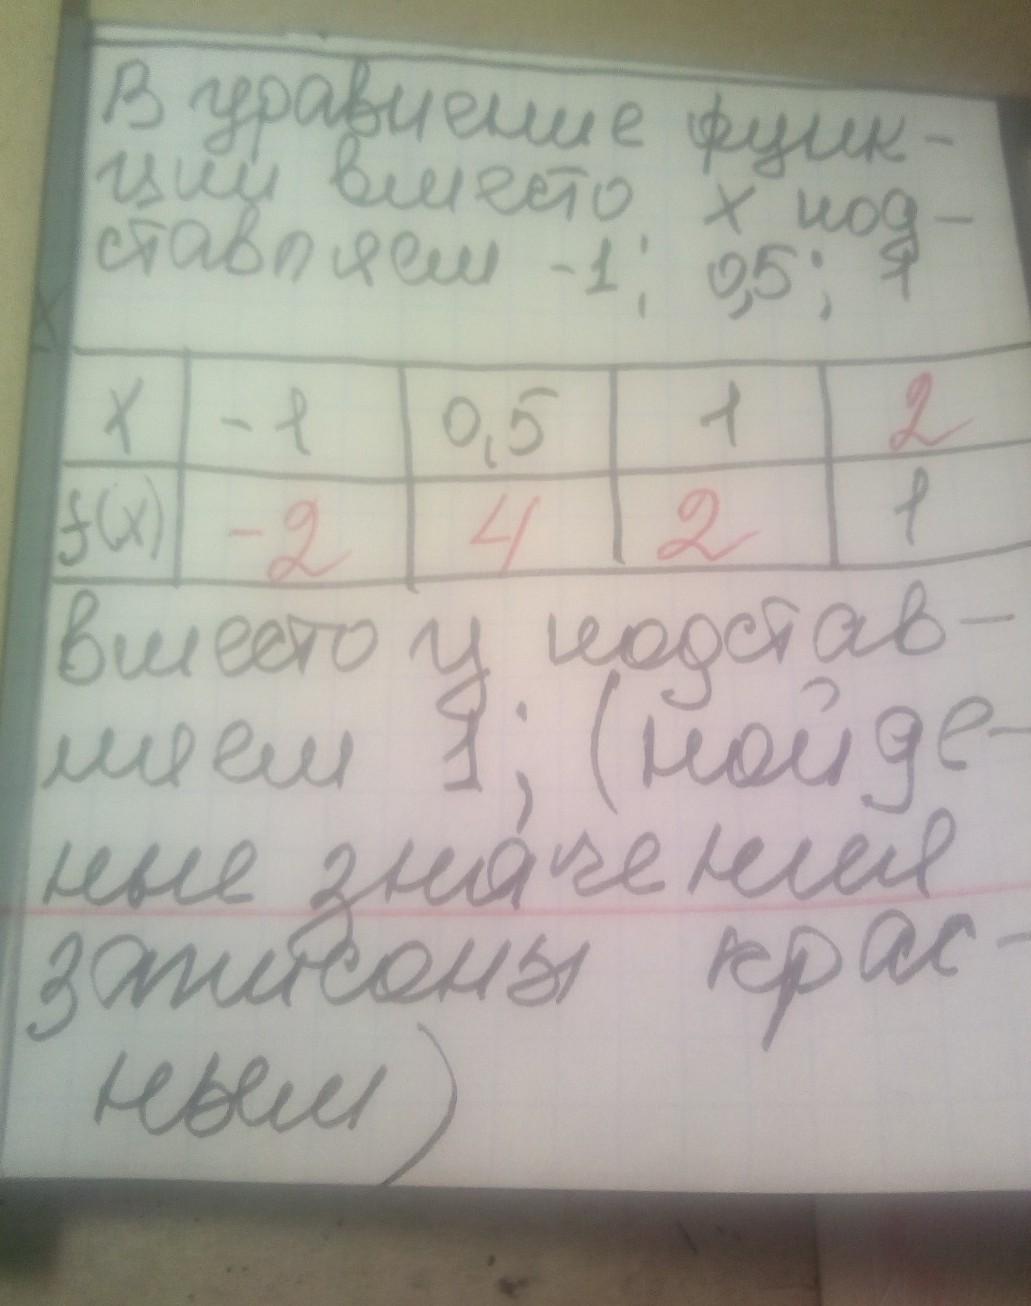 В уравнение функ-
ции вместо x под-
ставляем -1; 0,5; 1
x -1 0,5 1 2
f(x) -2 4 2 1
вместо у подстав-
ляем 1; (найде-
ные значения
записаны крас-
ным)